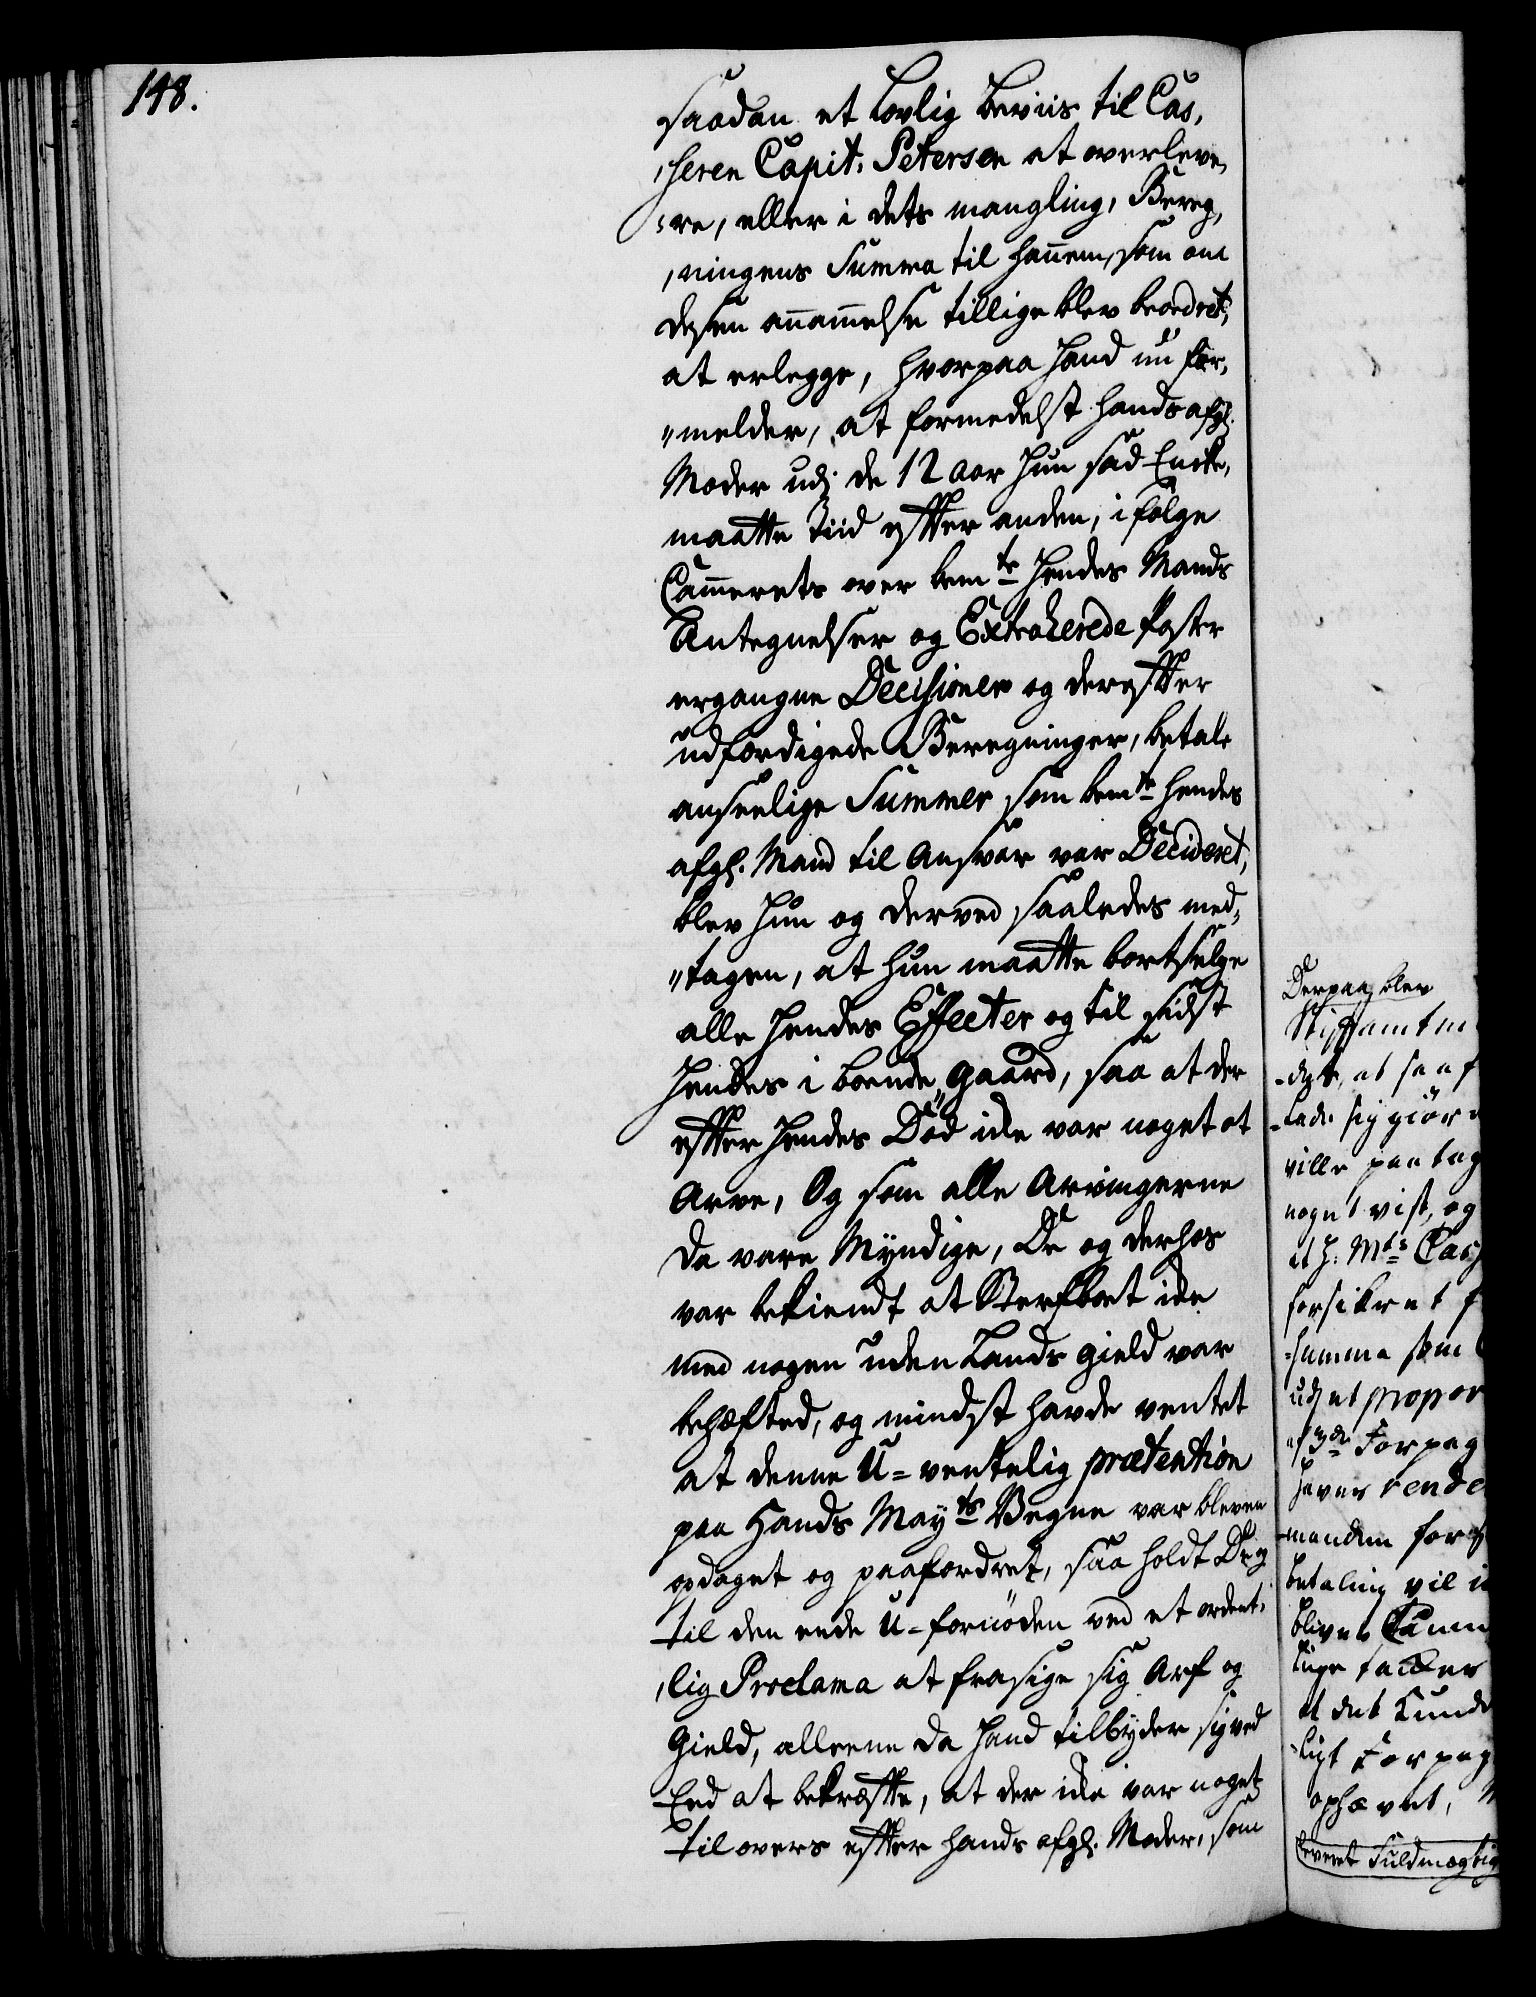 148.
saadan et Lovlig beviis til Cas,
,seren Capit: Petersen at overleve,
,re, eller i dets mangling, Bereg,
,ningens Summa til hannem, som om
desen annammelse tillige blev beordret,
at erlegge, hvorpaa Hand nu for,
"melder, at formedelst hands afgl.
Moder udj de 12 aar hun sad Encke,
maatte Tiid efter anden, i følge
Cammerets over bemte Hendes Mands
Antegnelser og Extraherede Poster
ergangne Decisioner og derefter
udferdigede Beregninger, betale
anseelige Summer som bemte Hendes
afgl. Mand til Ansvar var Decideret,
blev Hun og derved saaledes med,
"tagen, at hun maatte bortselge
alle Hendes Effecter og til sidst
Hendes i boende gaard, saa at der
efter Hendes Død icke var noget at
Arve, Og som alle Arvingerne
da vare Myndige, De og derhos
var bekiendt at Sterfboet icke
med nogen uden Lands gield var
behæfted, og mindst havde ventet
at denne U-ventelig prætention
paa Hands Mayts Vegne var bleven
opdaget og paafordret, saa holdt De og
til den ende U-fornøden ved et ordent,
,lig Proclama at frasige sig Arf og
Gield, alleene da Hand tilbyder sig ved
Eed at bekræfte, at der icke var noget
til overs efter hands afgl. Moder, som
Derpaa blev
Stiftamtm
ville paatag
noget vist, og
at H: Mts Cas
forsikret f
-summa som
udj et propor
af 3de Forpag
haver rende
-manden for
betaling vil i
blives Camm
at det Kunde
-ligt Forpag
ophævet,
leveret Fuldmægtig